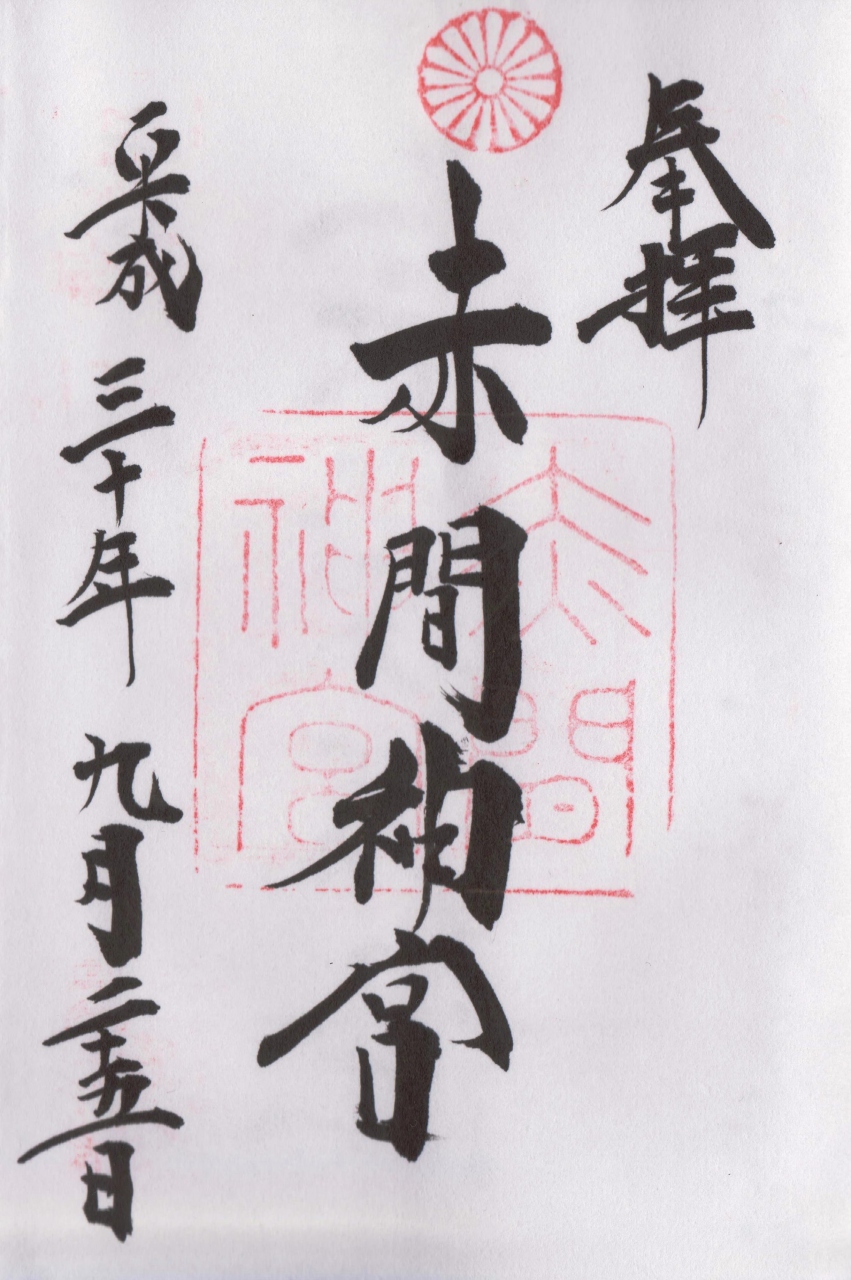 奉拝
赤間神宮
赤間
神宮
平成三十年九月二十五日